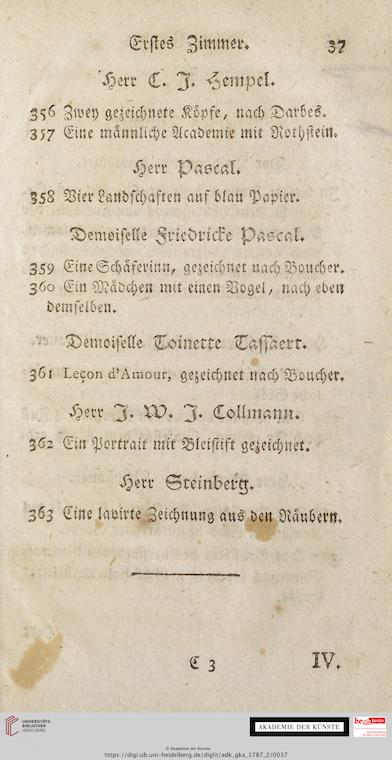 Erstes Zimmer. 37
Herr C. J. Hempel.
356 Zwey gezeichnete Köpfe, nach Darbes.
357 Eine männliche Academie mit Rothstein.
Herr Pascal.
358 Vier Landschaften auf blau Papier.
Demoiselle Friedricke Pascal.
359 Eine Schäferinn, gezeichnet nach Boucher.
360 Ein Mädchen mit einen Vogel, nach eben
demselben.
Demoiselle Toinette Tassaert.
361 Leçon d'Amour, gezeichnet nach Boucher.
Herr J. W. J. Collmann.
362 Ein Portrait mit Bleistift gezeichnet.
Herr Steinberg.
363 Eine lavirte Zeichnung aus den Räubern.
C 3 IV.
UNIVERSITÄTS-
BIBLIOTHEK
HEIDELBERG
AKADEMIE DER KÜNSTE
© Akademie der Künste
https://digi.ub.uni-heidelberg.de/diglit/adk_gka_1787_2/0037